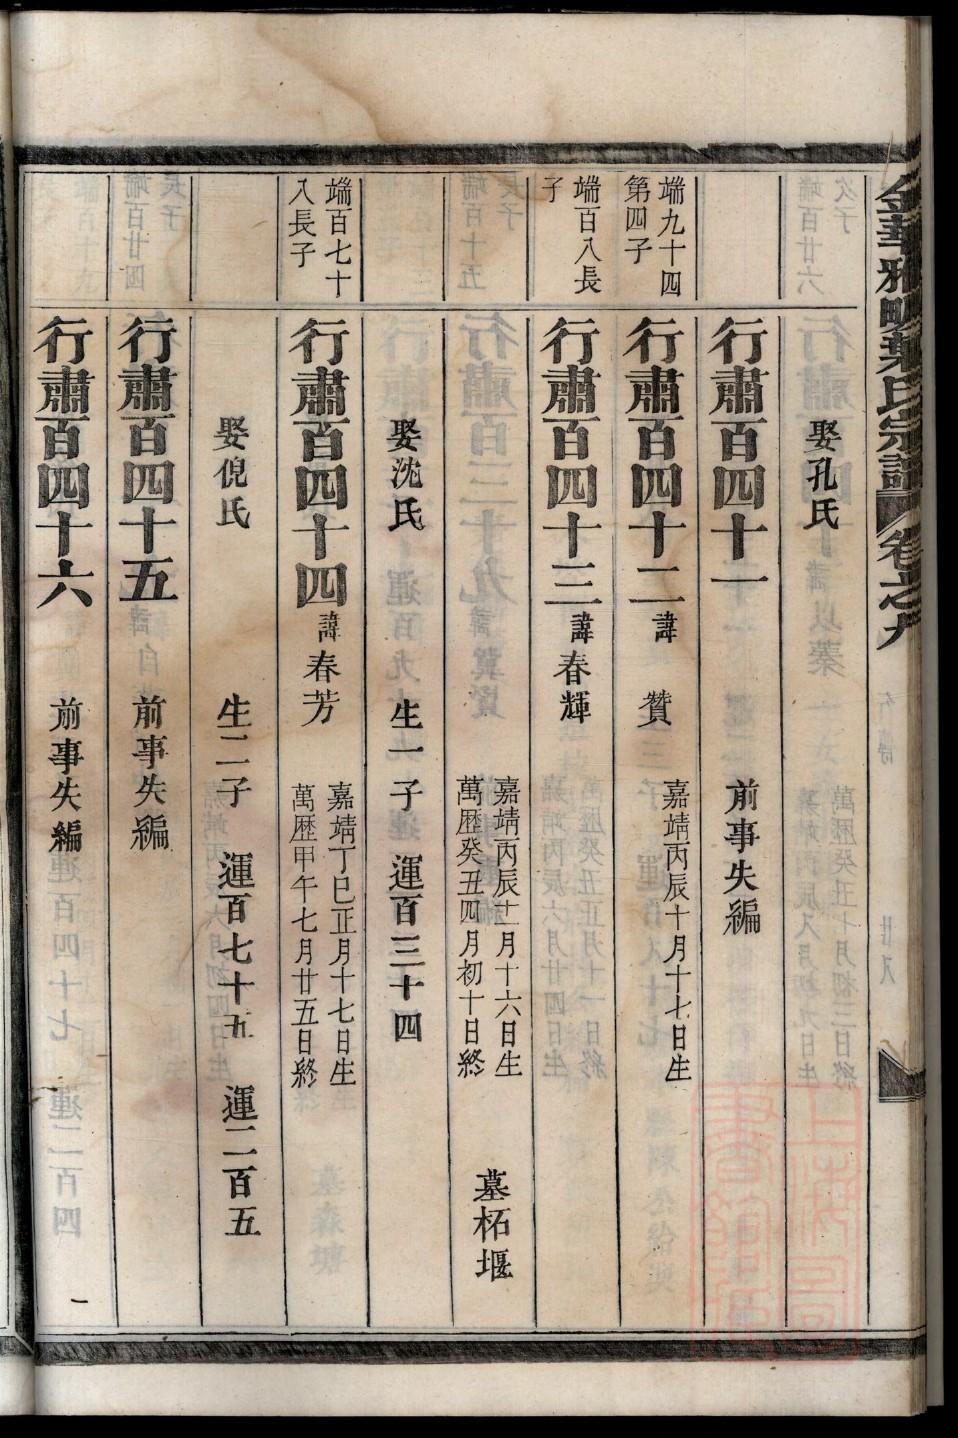 金華雅畈葉氏宗譜 卷之九
娶孔氏
行肅百四十一 前事失編
端九十四第四子
行肅百四十二 諱贊 嘉靖丙辰十月十七日生
端百八長子
行肅百四十三 諱春輝
嘉靖丙辰十二月十六日生
萬歷癸丑四月初十日終
墓柘堰
娶沈氏 生一子 運百三十四
端百七十八長子
行肅百四十四 諱春芳
嘉靖丁巳正月十七日生
萬歷甲午七月廿五日終
娶倪氏 生二子 運百七十五 運二百五
行肅百四十五 前事失編
行肅百四十六 前事失編